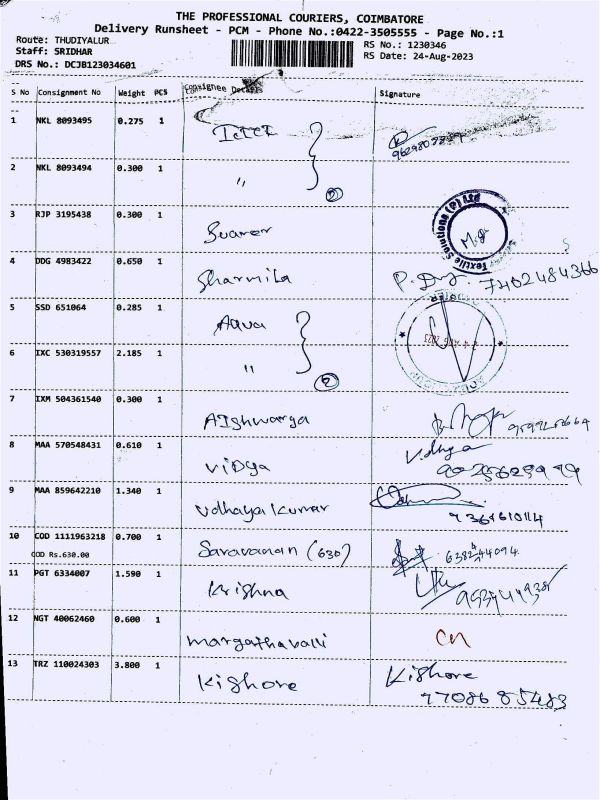 THE PROFESSIONAL COURIERS, COIMBATORE
Delivery Runsheet - PCM - Phone No.:0422-3505555 - Page No.:1
Route: THUDIYALUR
Staff: SRIDHAR
DRS No.: DCJB123034601
RS No.: 1230346
RS Date: 24-Aug-2023
S No Consignment No Weight PCS Consignee Details Signature
1 NKL 8093495 0.275 1
2 NKL 8093494 0.300 1 "
2
3 RJP 3195438 0.300 1
Textile Solutions (P) Ltd
4 DDG 4983422 0.650 1 Sharmila 7402484366
5 SSD 651064 0.285 1
6 IXC 530319557 2.185 1 "
2
7 IXM 504361540 0.300 1 AIshwarya
8 MAA 570548431 0.610 1 ViDya Vidhya
9 MAA 859642210 1.340 1 Udhaya kumar
10 COD 1111963218 0.700 1 Saravanan (630)
COD Rs.630.00
11 PGT 6334007 1.590 1 Krishna
12 NGT 40062460 0.600 1 margathavalli
13 TRZ 110024303 3.800 1 Kishore Kishore
97086 85483